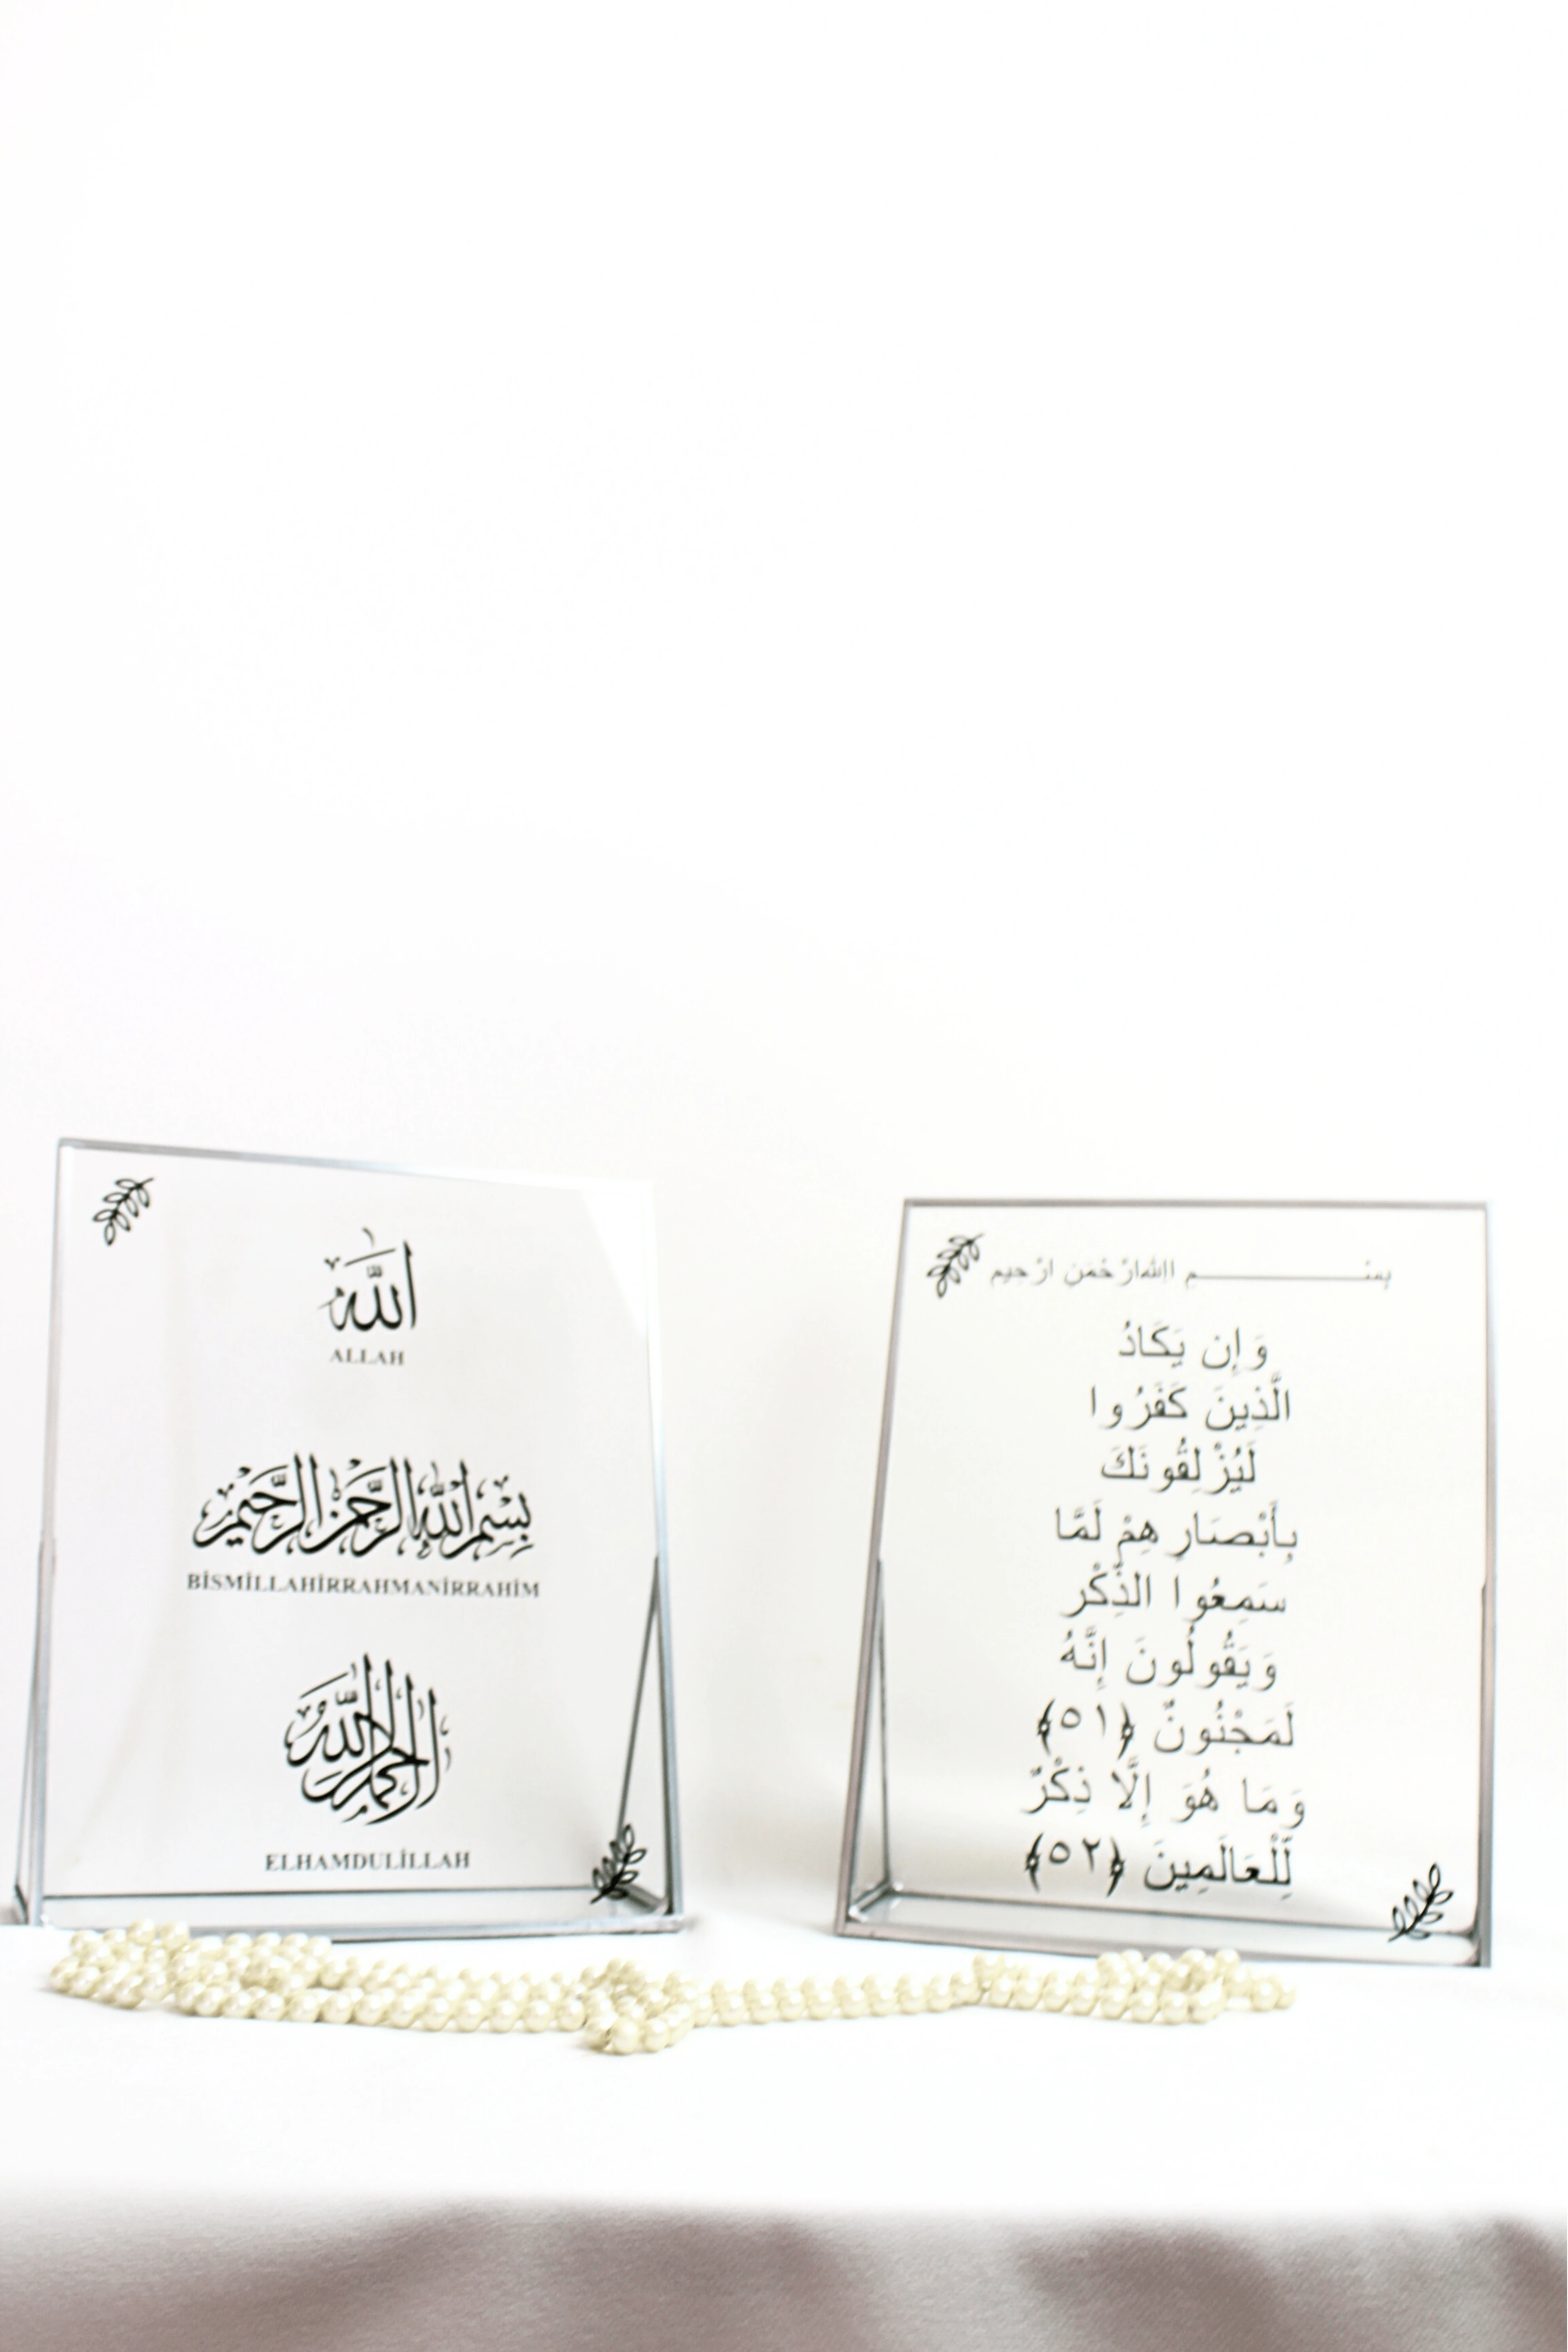 الله
ALLAH
بِسْمِ اللهِ الرَّحْمٰنِ الرَّحِيمِ
BİSMİLLAHİRRAHMANİRRAHİM
الحمد لله
ELHAMDULİLLAH
بِسْـــــــــــمِ اللهِ ارْحْمَنِ ارْحيم
وَإِن يَكَادُ
الَّذِينَ كَفَرُوا
لَيُزْلِقُونَكَ
بِأَبْصَارِهِمْ لَمَّا
سَمِعُوا الذِّكْر
وَيَقُولُونَ إِنَّهُ
لَمَجْنُونٌ ﴿٥١﴾
وَمَا هُوَ إِلَّا ذِكْرٌ
لِّلْعَالَمِينَ ﴿٥٢﴾